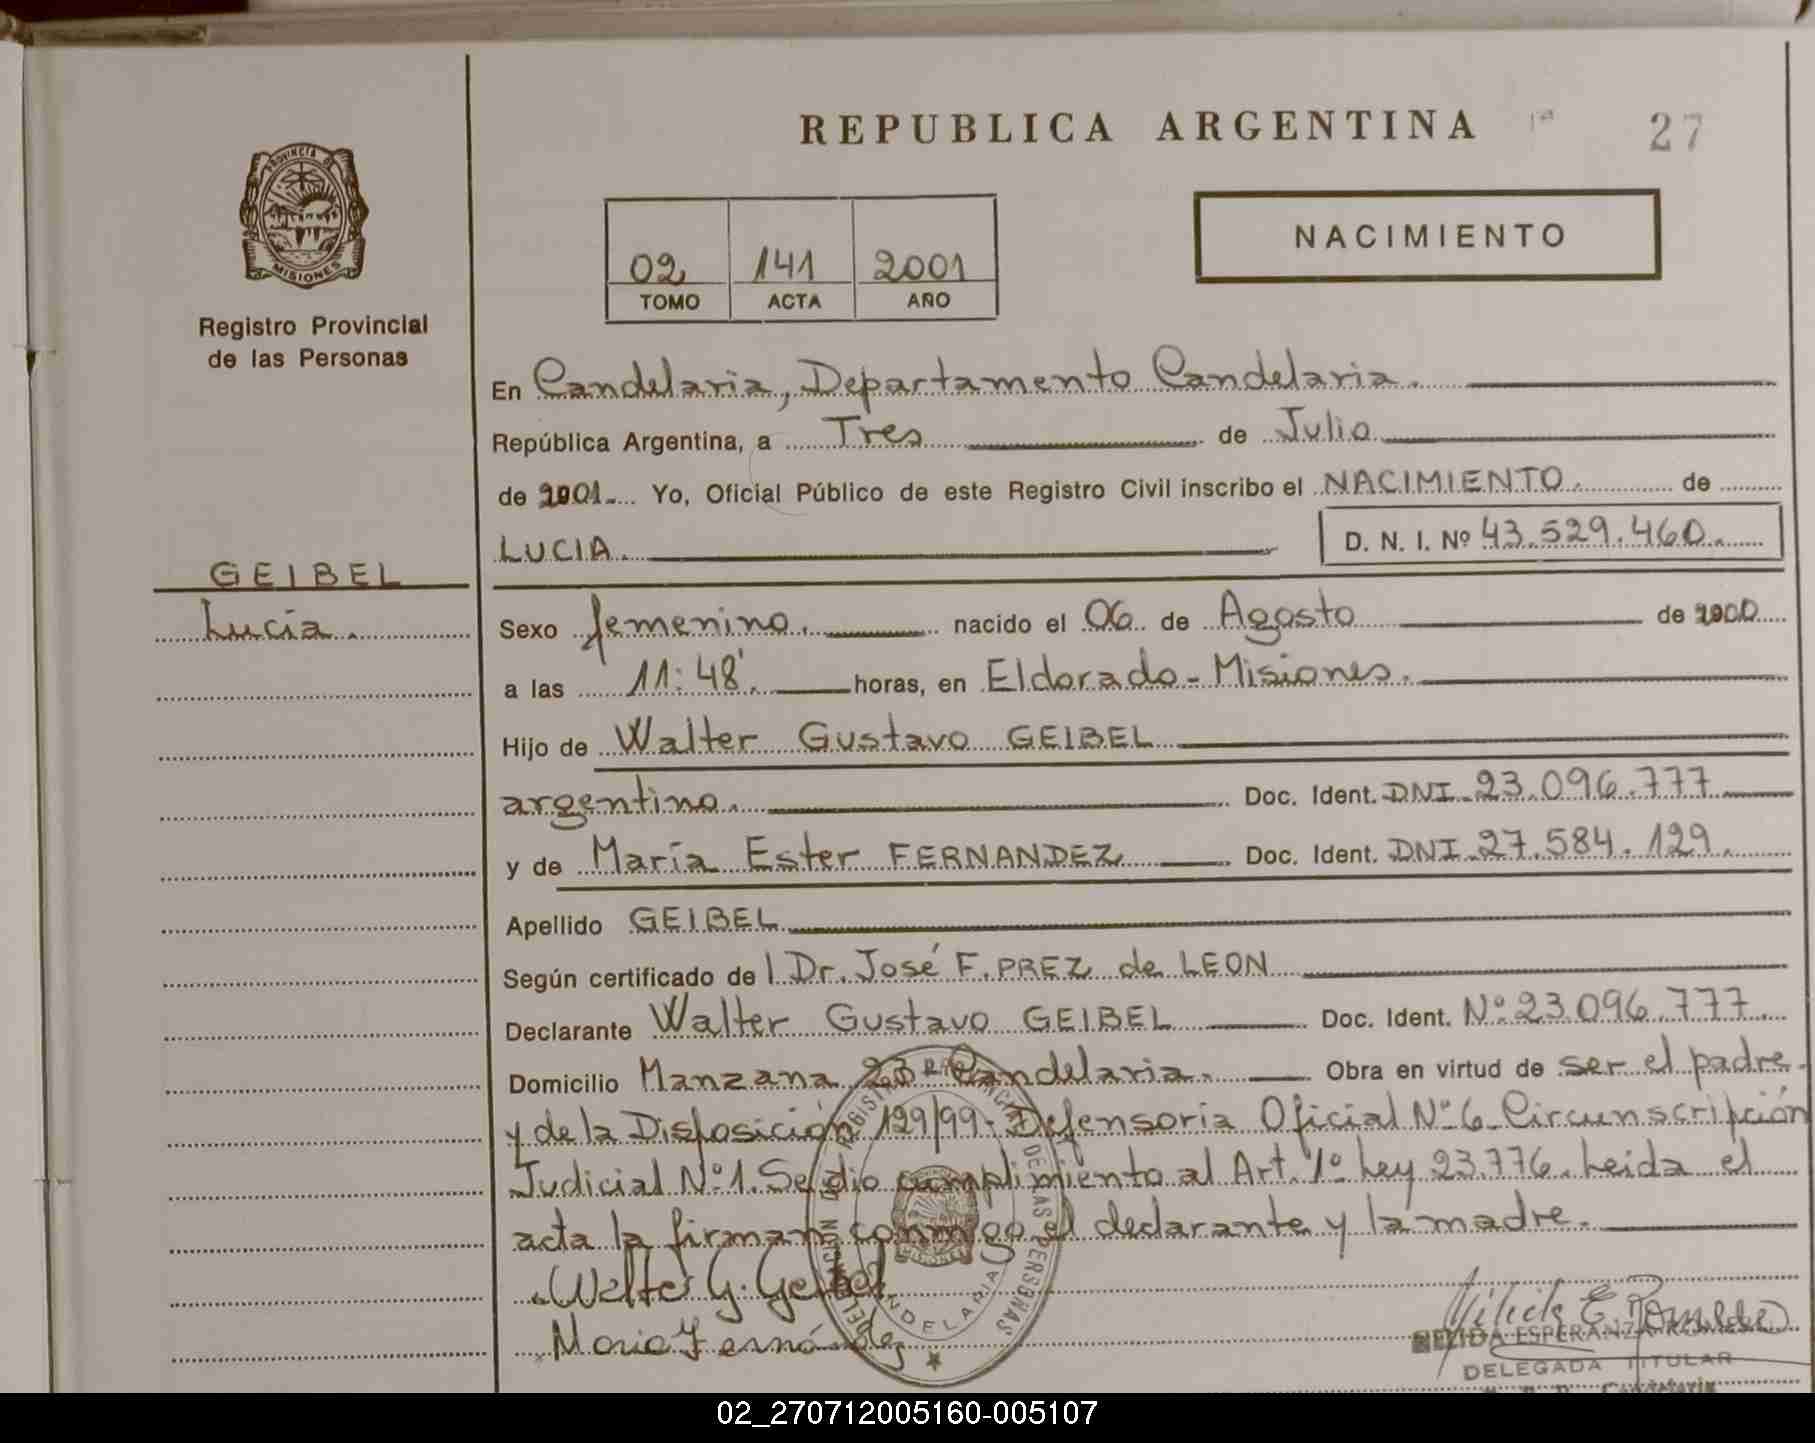 REPUBLICA ARGENTINA
27
PROVINCIA DE
MISIONES
Registro Provincial
de las Personas
02 141 2001
TOMO ACTA AÑO
NACIMIENTO
En Candelaria, Departamento Candelaria.
República Argentina, a Tres de Julio
de 2001. Yo, Oficial Público de este Registro Civil inscribo el NACIMIENTO. de
LUCIA. D. N. I. Nº 43.529.460.
GEIBEL
Lucía.
Sexo femenino. nacido el 06 de Agosto de 2000
a las 11:48'. horas, en Eldorado - Misiones.
Hijo de Walter Gustavo GEIBEL
argentino. Doc. Ident. DNI. 23.096.777
y de María Ester FERNANDEZ Doc. Ident. DNI. 27.584.129.
Apellido GEIBEL
Según certificado de l Dr. José F. PREZ de LEON
Declarante Walter Gustavo GEIBEL Doc. Ident. Nº 23.096.777.
Domicilio Manzana 23 Candelaria. Obra en virtud de ser el padre
y de la Disposición 129/99 - Defensoria Oficial Nº 6 Circunscripción
Judicial Nº 1. Se dio cumplimiento al Art. 1º Ley 23.776. Leida el
acta la firman conmigo el declarante y la madre.
Walter G. Geibel
Maria Fernández
ESPERANZA
DELEGADA TITULAR
02_270712005160-005107